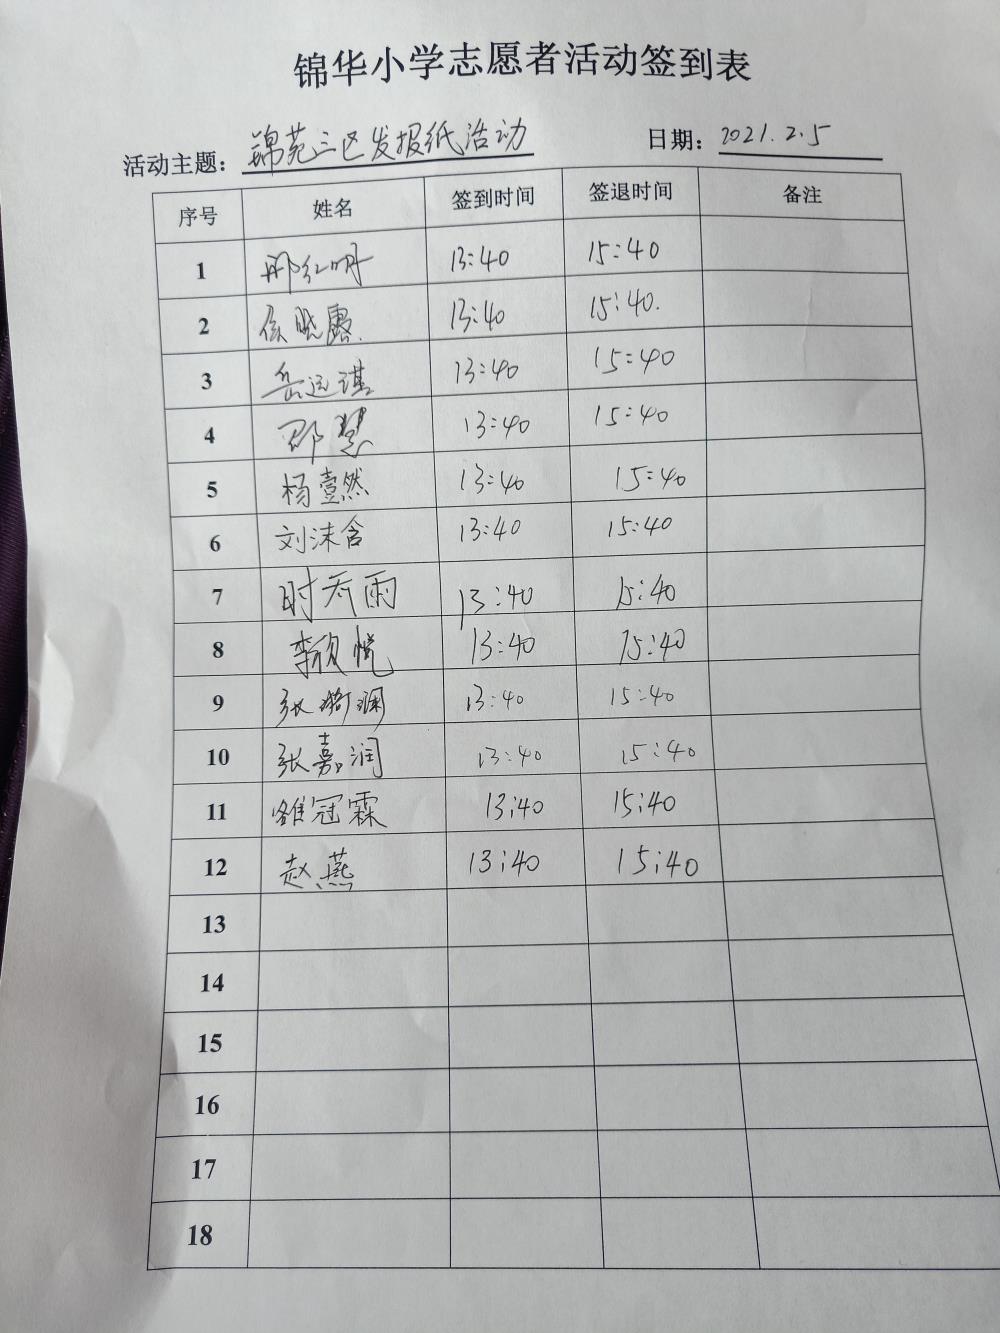 锦华小学志愿者活动签到表
活动主题: 锦苑三区发报纸活动 日期: 2021.2.5
序号 姓名 签到时间 签退时间 备注
1 邢红明 13:40 15:40
2 侯晓露. 13:40 15:40.
3 岳远祺 13:40 15:40
4 邵慧 13:40 15:40
5 杨壹然 13:40 15:40
6 刘沫含 13:40 15:40
7 时雨 13:40 15:40
8 李欣悦 13:40 15:40
9 张澜 13:40 15:40
10 张嘉润 13:40 15:40
11 雒冠霖 13:40 15:40
12 赵燕 13:40 15:40
13
14
15
16
17
18